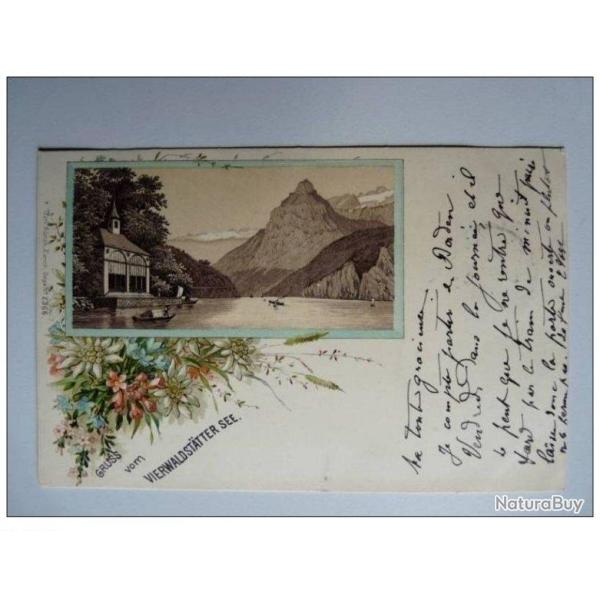 GRUSS
vom
VIERWALDSTÄTTER SEE.
Ma toute gracieuse!
Je compte partir de Baden
Vendredi dans la journée et il
se peut que je ne rentre que
tard par le tram de minuit
laisse donc la porte ouverte ou plutôt
ne la ferme pas.
NaturaBuy